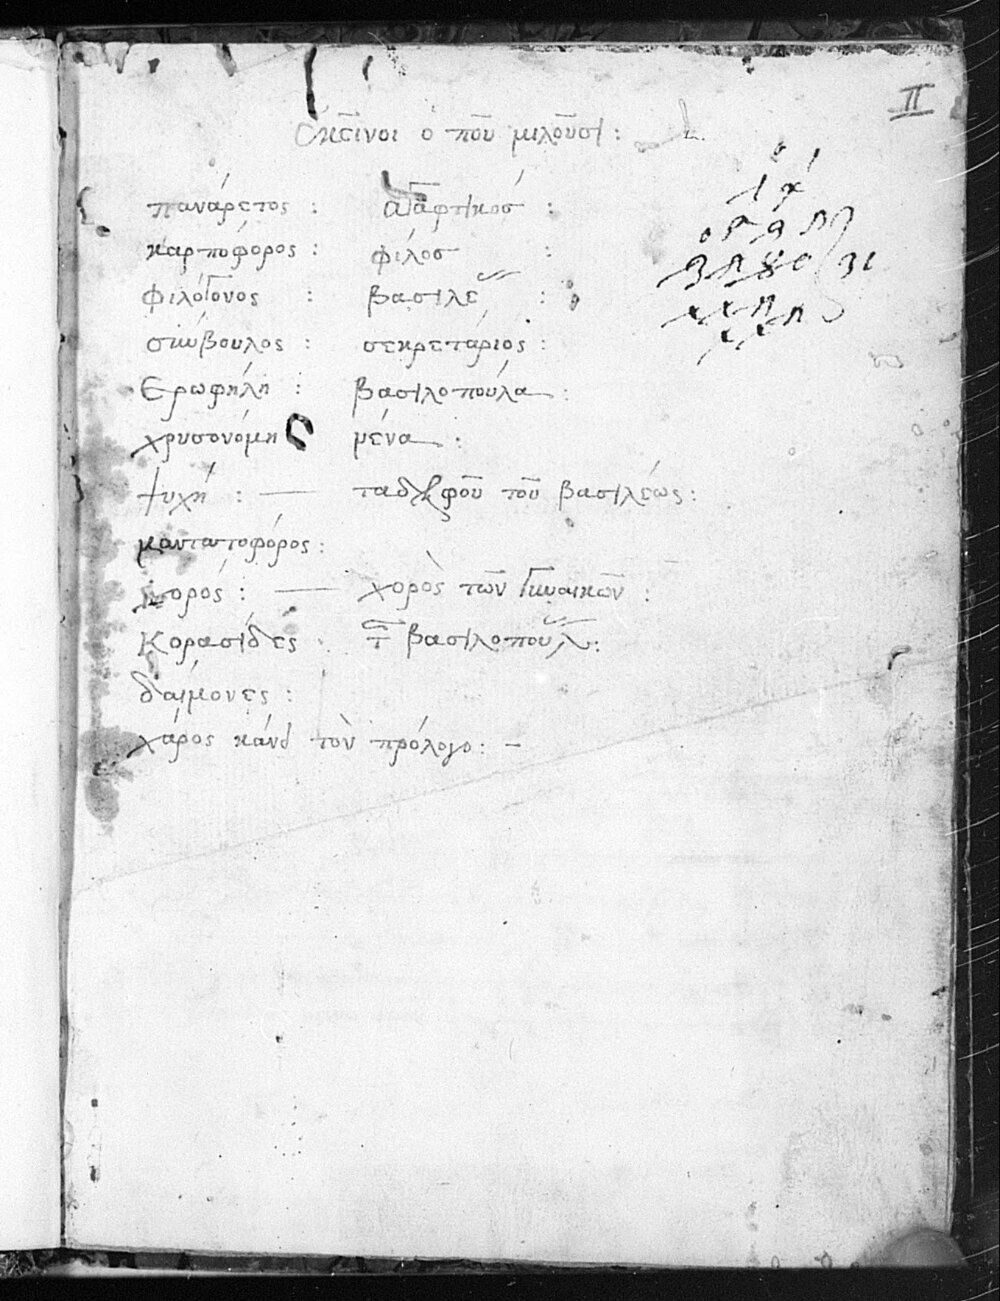 II
ἐκεῖνοι ὁ ποῦ μιλοῦσι :
πανάρετος : ἀγαφτικός :
καρπόφορος : φίλος :
φιλόγονος : βασιλε :
σύβουλος : σεκρετάριος :
Ερωφήλη : βασιλοπούλα :
χρυσονόμη μένα :
ψυχή : — ταδελφοῦ τοῦ βασιλέως :
μαντατοφόρος :
χορός : — χορὸς τῶν γυναικῶν :
Κορασίδες τ βασιλοπούλ :
δαίμονες :
χάρος κάνει τὸν πρόλογο : –